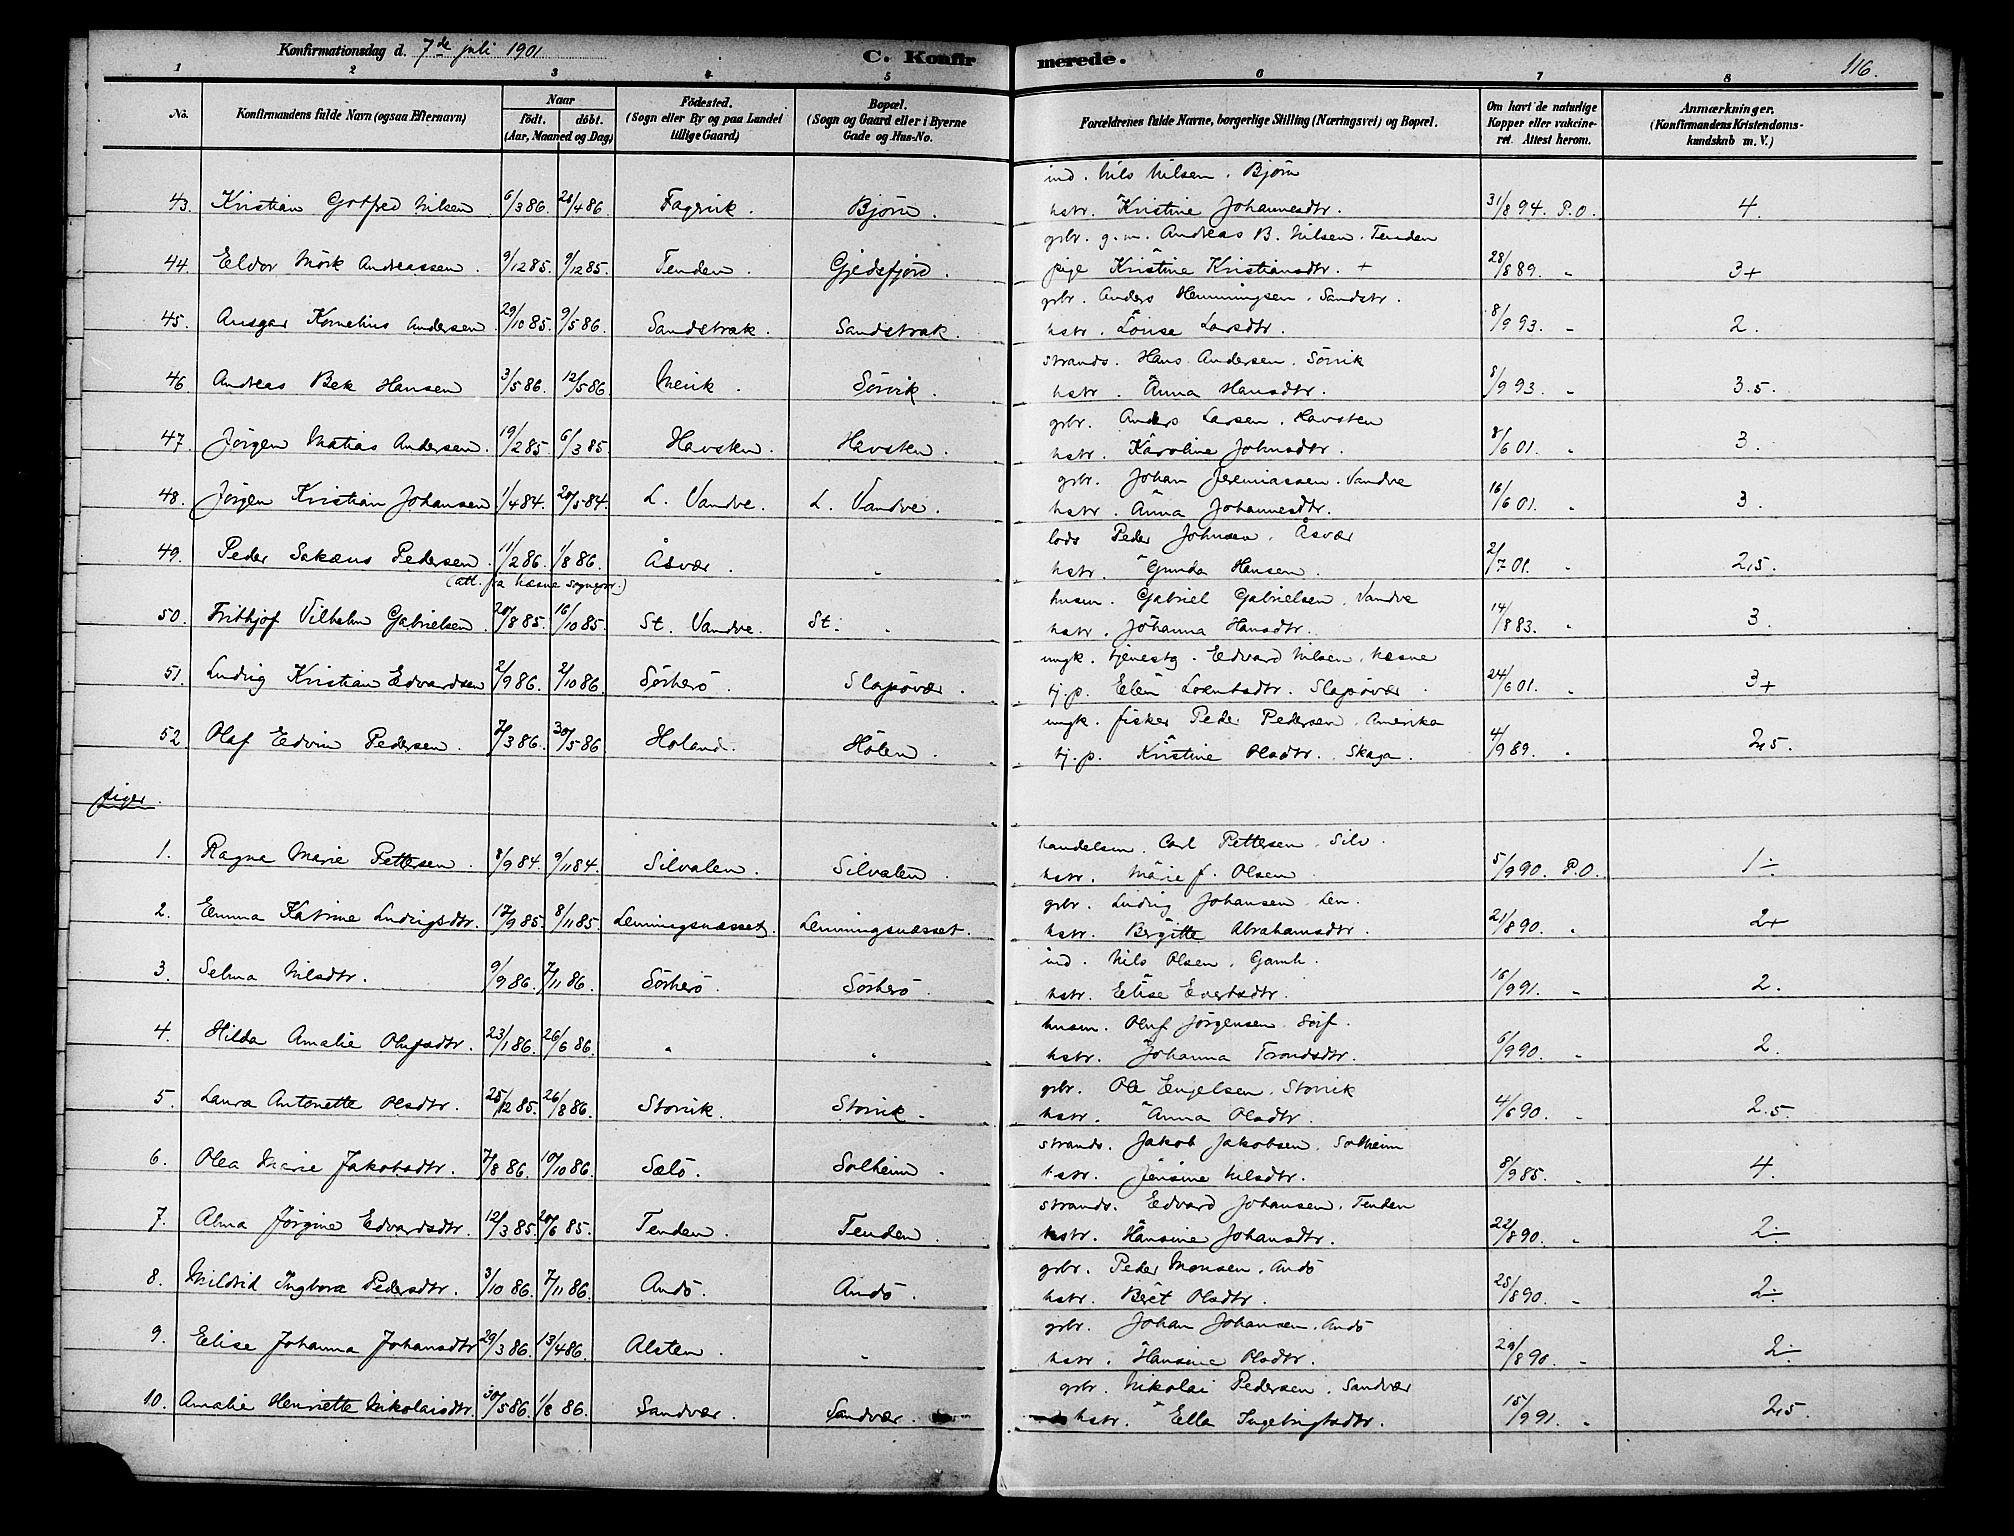 Konfirmationsdag d. 7de juli 1901
C. Konfirmerede.
116.
1 2 3 4 5 6 7 8
No. Konfirmandens fulde Navn (ogsaa Efternavn) Naar født. døbt. (Aar, Maaned og Dag) Födested. (Sogn eller By og paa Landet tillige Gaard) Bopæl. (Sogn og Gaard eller i Byerne Gade og Hus-No. Forældrenes fulde Navne, borgerlige Stilling (Næringsvei) og Bopæl. Om havt de naturlige Kopper eller vakcineret. Attest herom. Anmærkninger. (Konfirmandens Kristendomskundskab m. V.)
ind. Nils Nilsen. Bjørn
43. Kristian Gotfred Nilsen 6/3 86. 28/4 86. Fagervik. Bjørn. hstr. Kristine Johannesdtr. 31/8 94. P.O. 4
gbr. g.m. Andreas B. Nilsen. Tenden
44. Eldor Mörk Andreassen. 9/12 85. 9/12 85. Tenden. Gjedsfjord. pige Kristine Kristiansdtr. + 28/8 89. " 3+
gbr. Anders Henningsen. Sandstr.
45. Ansgar Kornelius Andersen 29/10 85. 9/5 86. Sandstrak. Sandstrak. hstr. Louise Larsdtr. 8/9 93. " 2.
strands. Hans Andersen. Sörvik
46 Andreas Bek Hansen 3/5 86. 12/5 86. Sörvik. hstr. Anna Hansdtr. 8/9 93. " 3.5.
gbr. Anders Larsen. Havsten
47. Jörgen Matias Andersen. 19/2 85. 6/3 85. Havsten. Havsten. hstr. Karoline Johnsdtr. 8/6 01. " 3.
gbr. Johan Jeremiassen. Vandve
48. Jörgen Kristian Johansen 1/4 84. 20/5 84. L. Vandve. L. Vandve. hstr. Anna Johannesdtr. 16/6 01. " 3.
lods Peder Johnsen. Åsvær
49. Peder Sakæus Pedersen 11/2 86. 1/8 86. Åsvær. " hstr. Gunda Hansen. 2/7 01. " 2,5.
(att. fra Næsne sognepr.)
husm. Gabriel Gabrielsen. Vandve
50. Frithjof Vilhelm Gabrielsen. 20/8 85. 16/10 85. St. Vandve. St. " hstr. Johanna Hansdtr. 14/8 83. " 3.
ungk. tjenestg. Edvard Nilsen. Næsne
51. Ludvig Kristian Edvardsen 2/9 86. 2/10 86. Sörherö. Slapövær. tj.p. Elen Slapövær. 24/6 01. " 3+
ungk. fisker Peder Pedersen. Amerika
52 Olaf Edvin Pedersen. 7/3 86. 30/5 86 Holand. Hölen. tj.p. Kristine Olsdtr. Skaga. 4/9 89. " 2,5.
piger.
handelsm. Carl Pettersen. Silv.
1. Ragna Marie Pettersen. 8/9 84. 9/11 84. Silvalen. Silvalen. hstr. Marie f. Olsen 5/9 90. P.O. 1÷
gbr. Ludvig Johansen. Len.
2. Emma Katrine Ludvigsdtr. 17/9 85. 8/11 85. Lenningsnæsset. Lenningsnæsset. hstr. Bergitte Abrahamsdtr. 21/8 90. " 2+
ind. Nils Olsen. Gamh.
3. Selma Nilsdtr. 9/9 86. 7/11 86. Sörherö. Sörherö. hstr. Elise Evertsdtr. 16/9 91. " 2.
husm. Oluf Jörgensen. Sörf.
4. Hilda Amalie Olufsdtr. 23/1 86. 26/6 86. " " hstr. Johanna Trondsdtr. 6/9 90. " 2.
gbr. Ole Engelsen. Storvik
5. Laura Antonette Olsdtr. 25/12 85. 26/8 86. Storvik. Storvik. hstr. Anna Olsdtr. 4/6 90. " 2.5
strands. Jakob Jakobsen. Solheim
6. Olea Marie Jakobsdtr. 7/8 86. 10/10 86. Sælö. Solheim. hstr. Jensine Nilsdtr. 8/9 85. " 4.
strands. Edvard Johansen. Tenden
7. Alma Jörgine Edvardsdtr. 12/3 85. 20/6 85. Tenden. Tenden. hstr. Hansine Johansdtr. 22/8 90. " 2÷
gbr. Peder Monsen. Andö
8. Mildrid Ingbora Pedersdtr. 3/10 86. 7/11 86. Andö. Andö. hstr. Beret Olsdtr. 25/8 90. " 2÷
gbr. Johan Johansen. Andö
9. Elise Johanna Johansdtr 29/3 86. 13/4 86. Alsten. " hstr. Hansine Olsdtr. 29/8 90. " 2÷
gbr. Nikolai Pedersen. Sandvær
10. Amalie Henriette Nikolaisdtr. 30/5 86. 1/8 86. Sandvær. Sandvær. hstr. Ella Ingebrigtsdtr. 15/9 91. " 2,5.